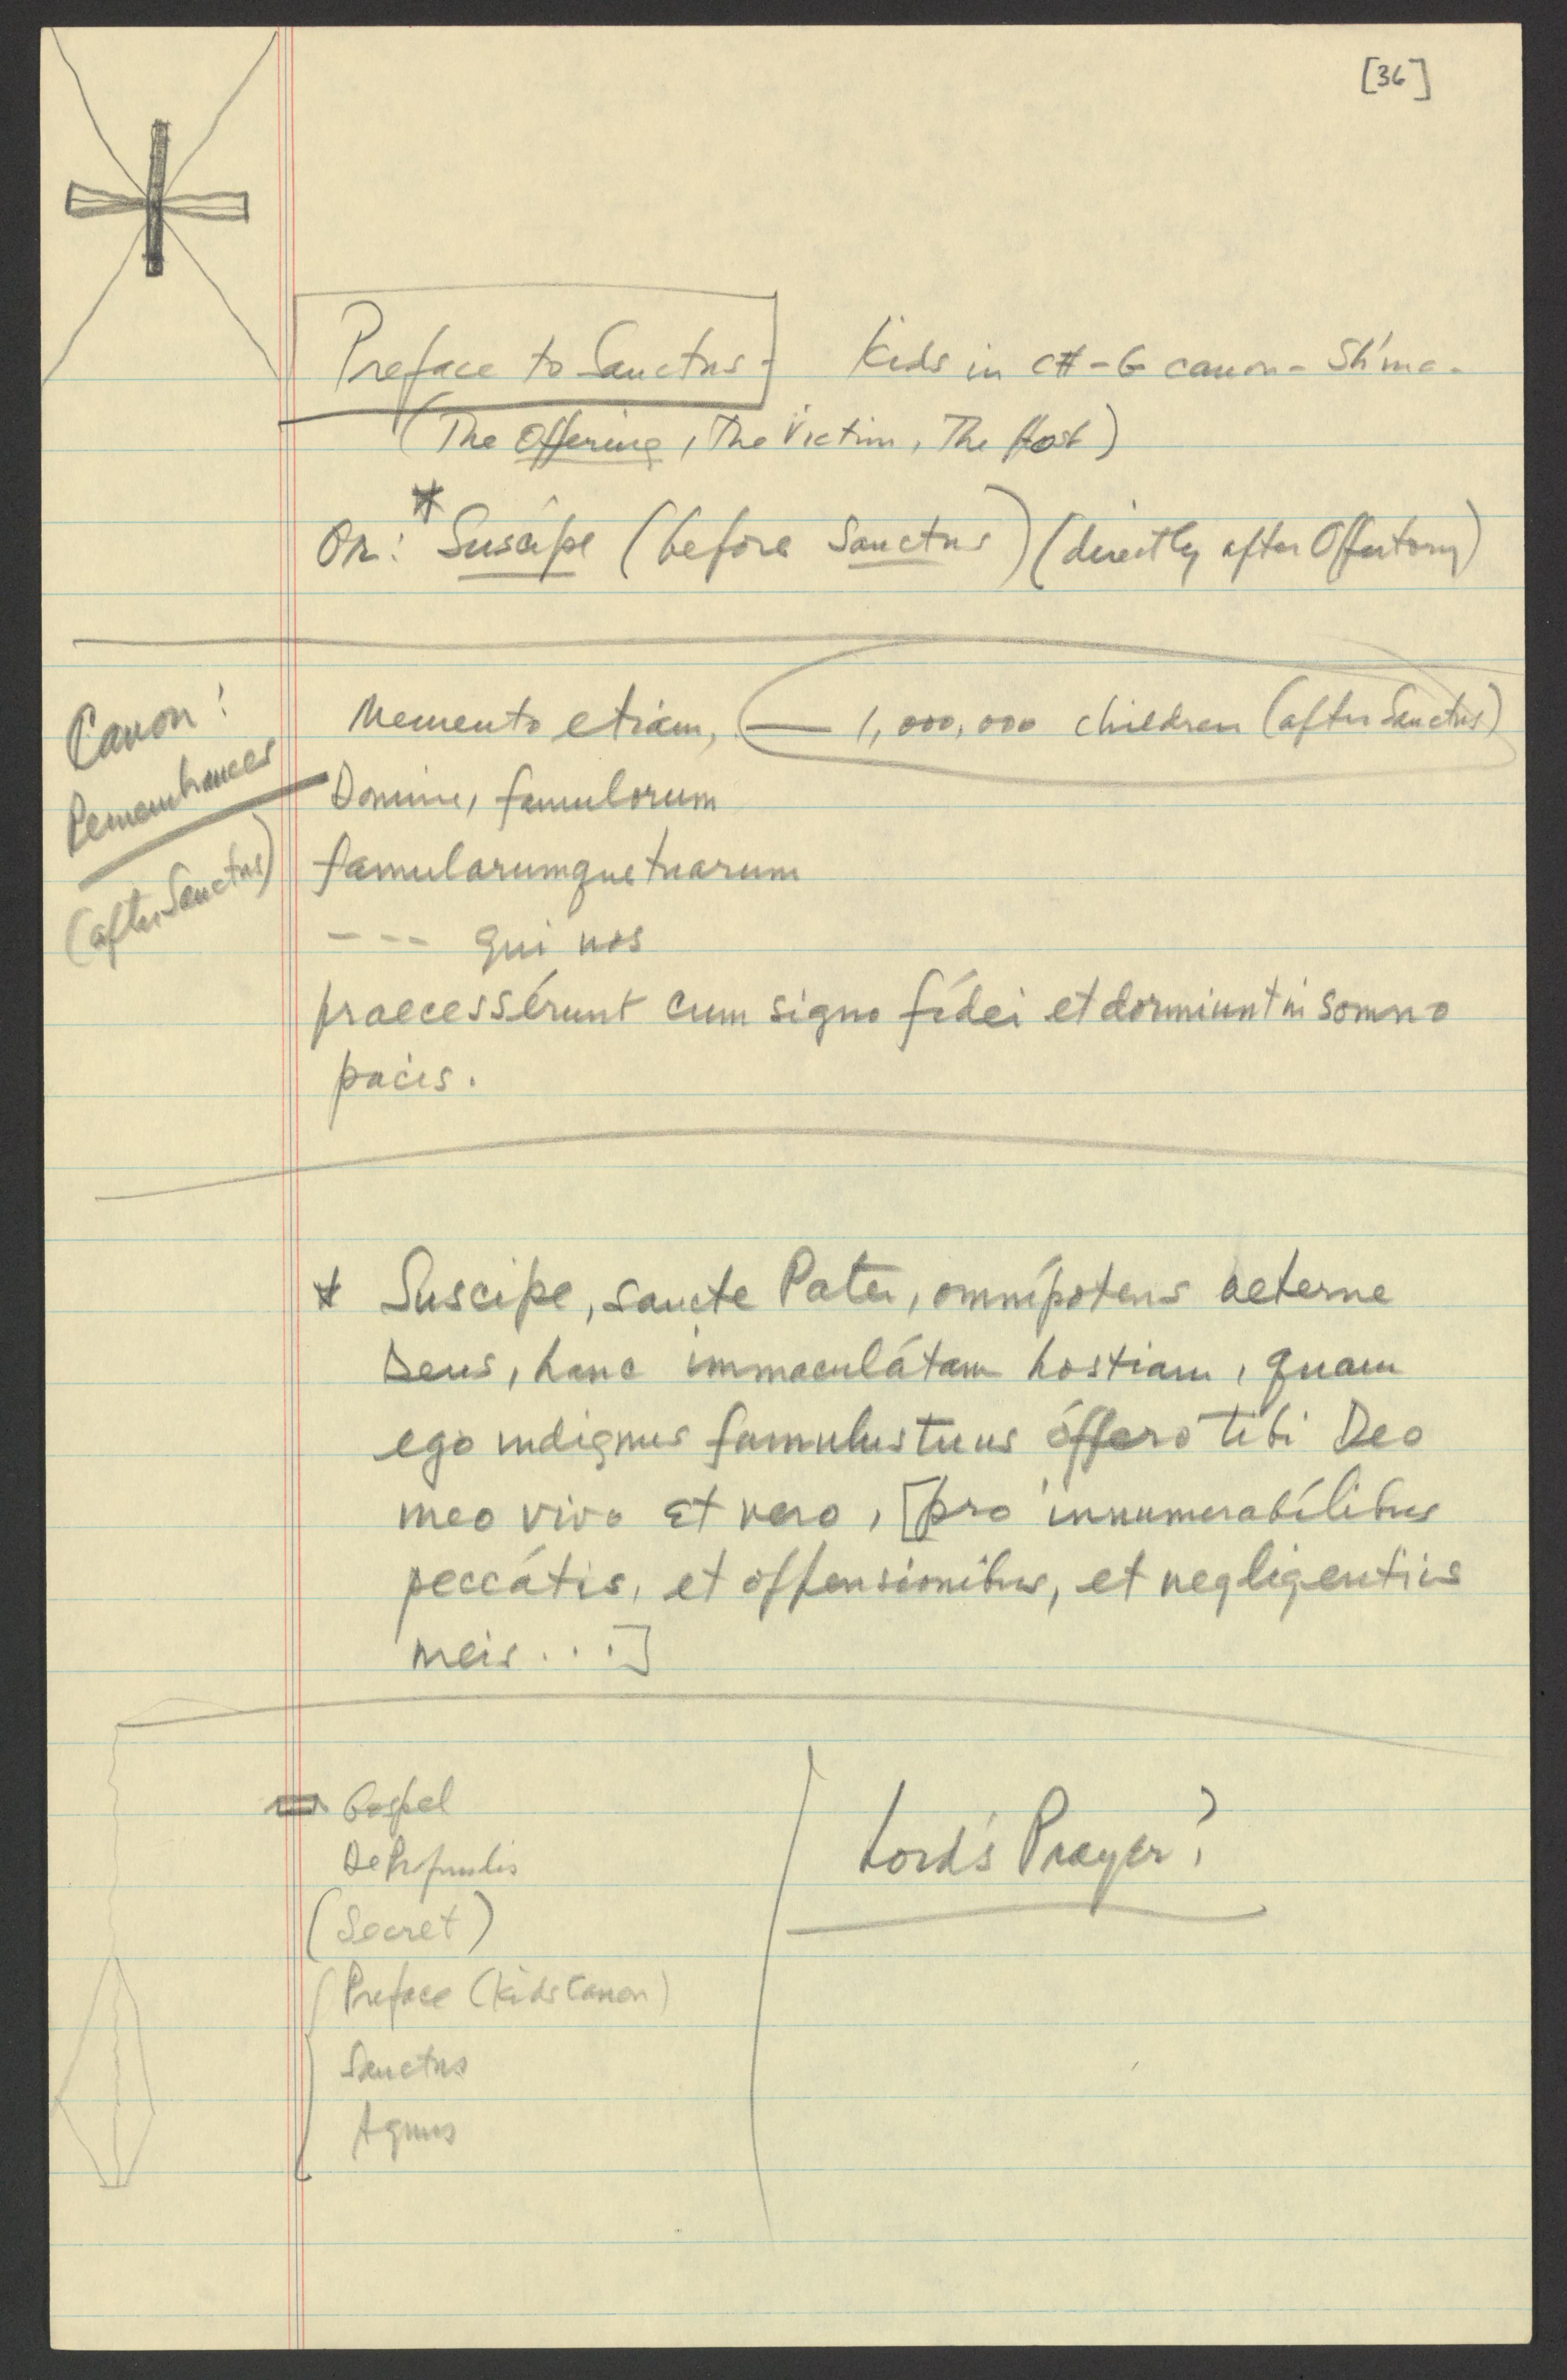 [36]
Preface to Sanctus - Kids in C# - G canon - Sh'ma -
(The Offering, The Victim, The Host)
OR: * Suscipe (before Sanctus) (directly after Offertory)
Canon:
Remembrances
(after Sanctus)
Memento etiam, — 1,000,000 children (after Sanctus)
Domine, famulorum
famularumque tuarum
--- qui nos
praecessérunt cum signo fídei et dormiunt in somno
pacis.
* Suscipe, sancte Pater, omnípotens aeterne
Deus, hanc immaculátam hostiam, quam
ego indignus famulus tuus óffero tibi Deo
meo vivo et vero, [pro innumerabílibus
peccátis, et offensionibus, et negligentiis
meis ...]
Gospel
De Profundis
(Secret)
Preface (Kids Canon)
Sanctus
Agnus
Lord's Prayer?